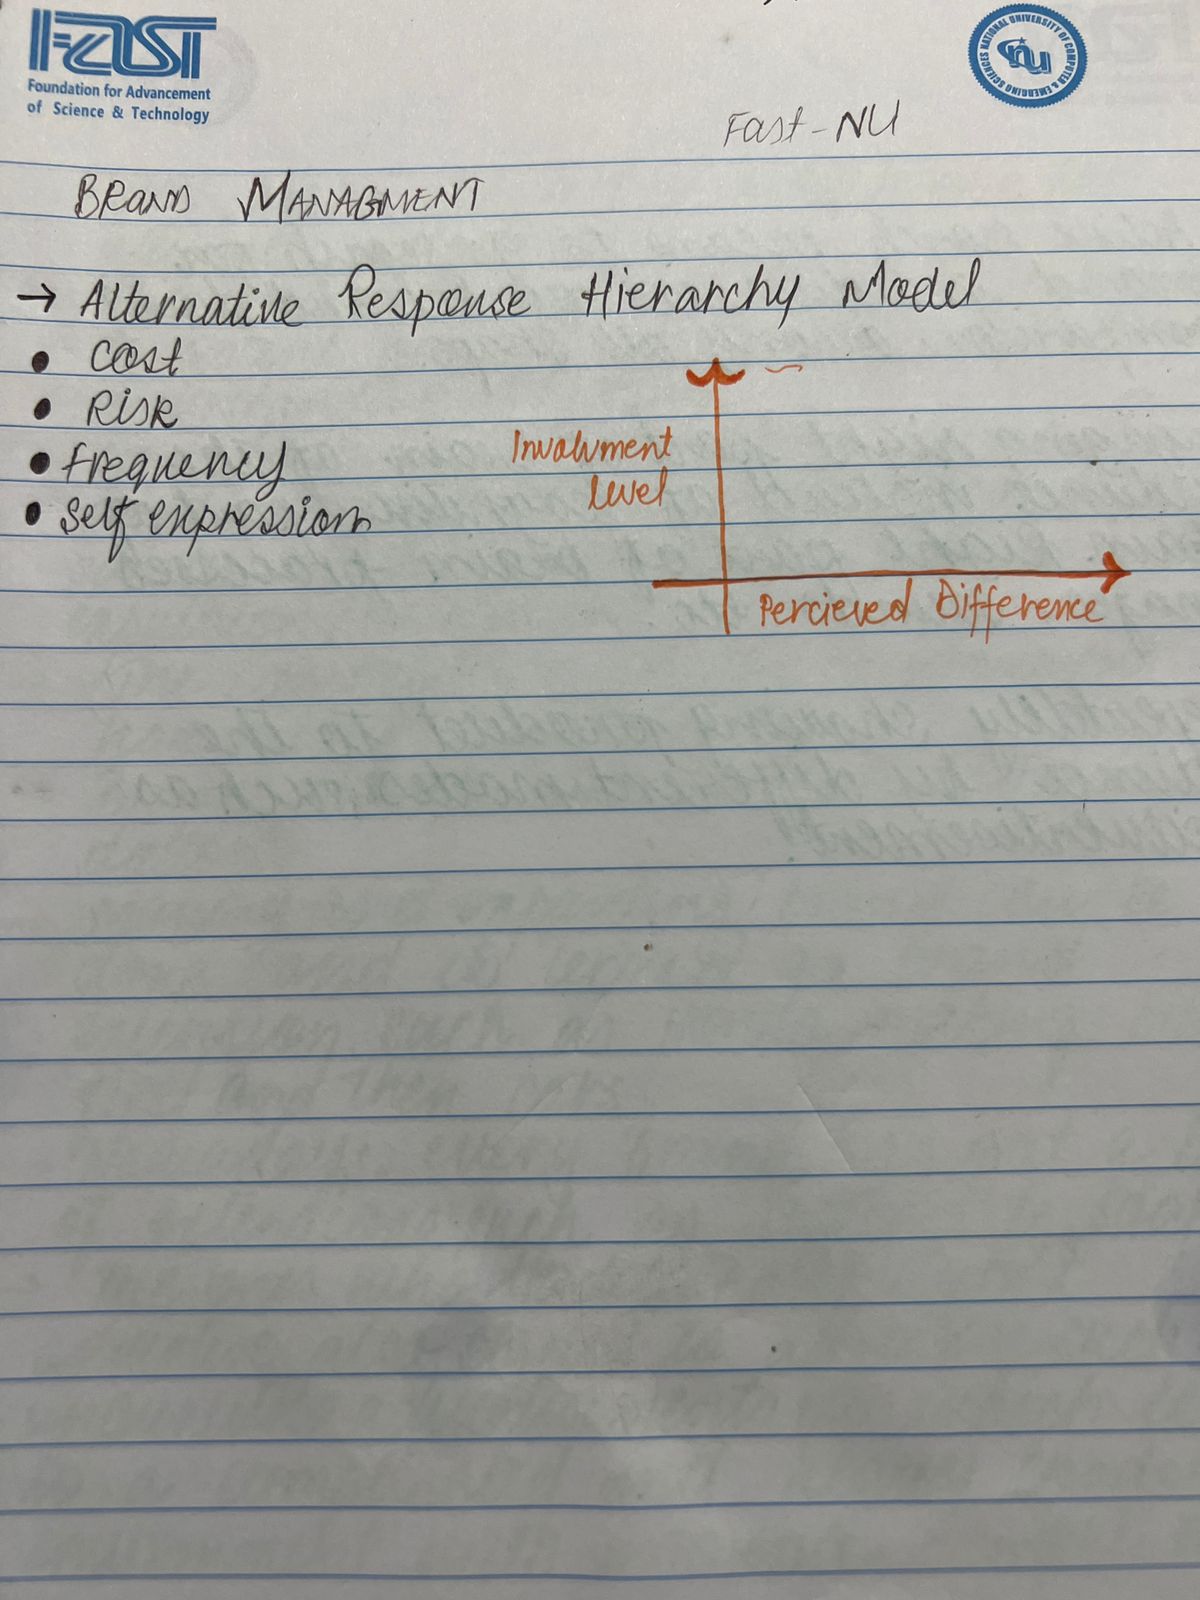 FAST
Foundation for Advancement
of Science & Technology
NATIONAL UNIVERSITY OF COMPUTER & EMERGING SCIENCES
nu
Fast-NU
BRAND MANAGMENT
→ Alternative Response Hierarchy Model
• Cost
• Risk
• frequency
• self expression
Involvment
level
Percieved Difference